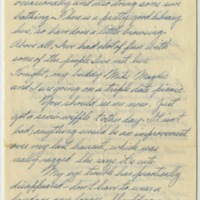 occasionally and also doing some sun
bathing. There is a pretty good library
here, so have done a little browsing.
Above all, have had a lot of fun with
some of the people I've met here.
Tonight, my buddy Mike
and I are going on a triple date picnic.
You should see us now. Just
got a semi-
had, anything would be an improvement
over my last haircut, which was
early, ragged. She says it's cute.
My eye trouble has practically
disappeared - don't have to wear a